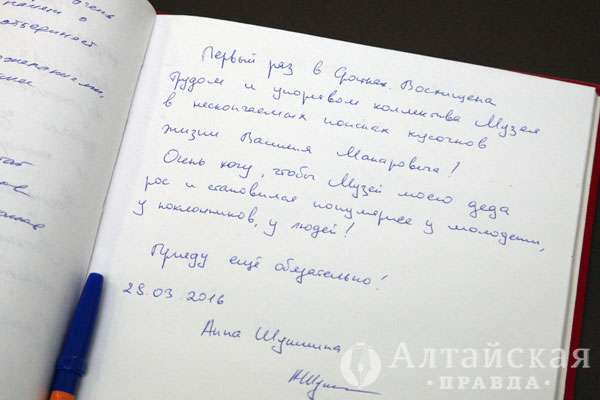 очень
Первый раз в Сростках. Восхищена
трудом и упорством коллектива Музея
в нескончаемых поисках кусочков
жизни Василия Макаровича!
Очень хочу, чтобы Музей моего деда
рос и становился популярнее у молодежи,
у поклонников, у людей!
Приеду ещё обязательно!
29.03.2016
Анна Шукшина
Алтайская
ПРАВДА